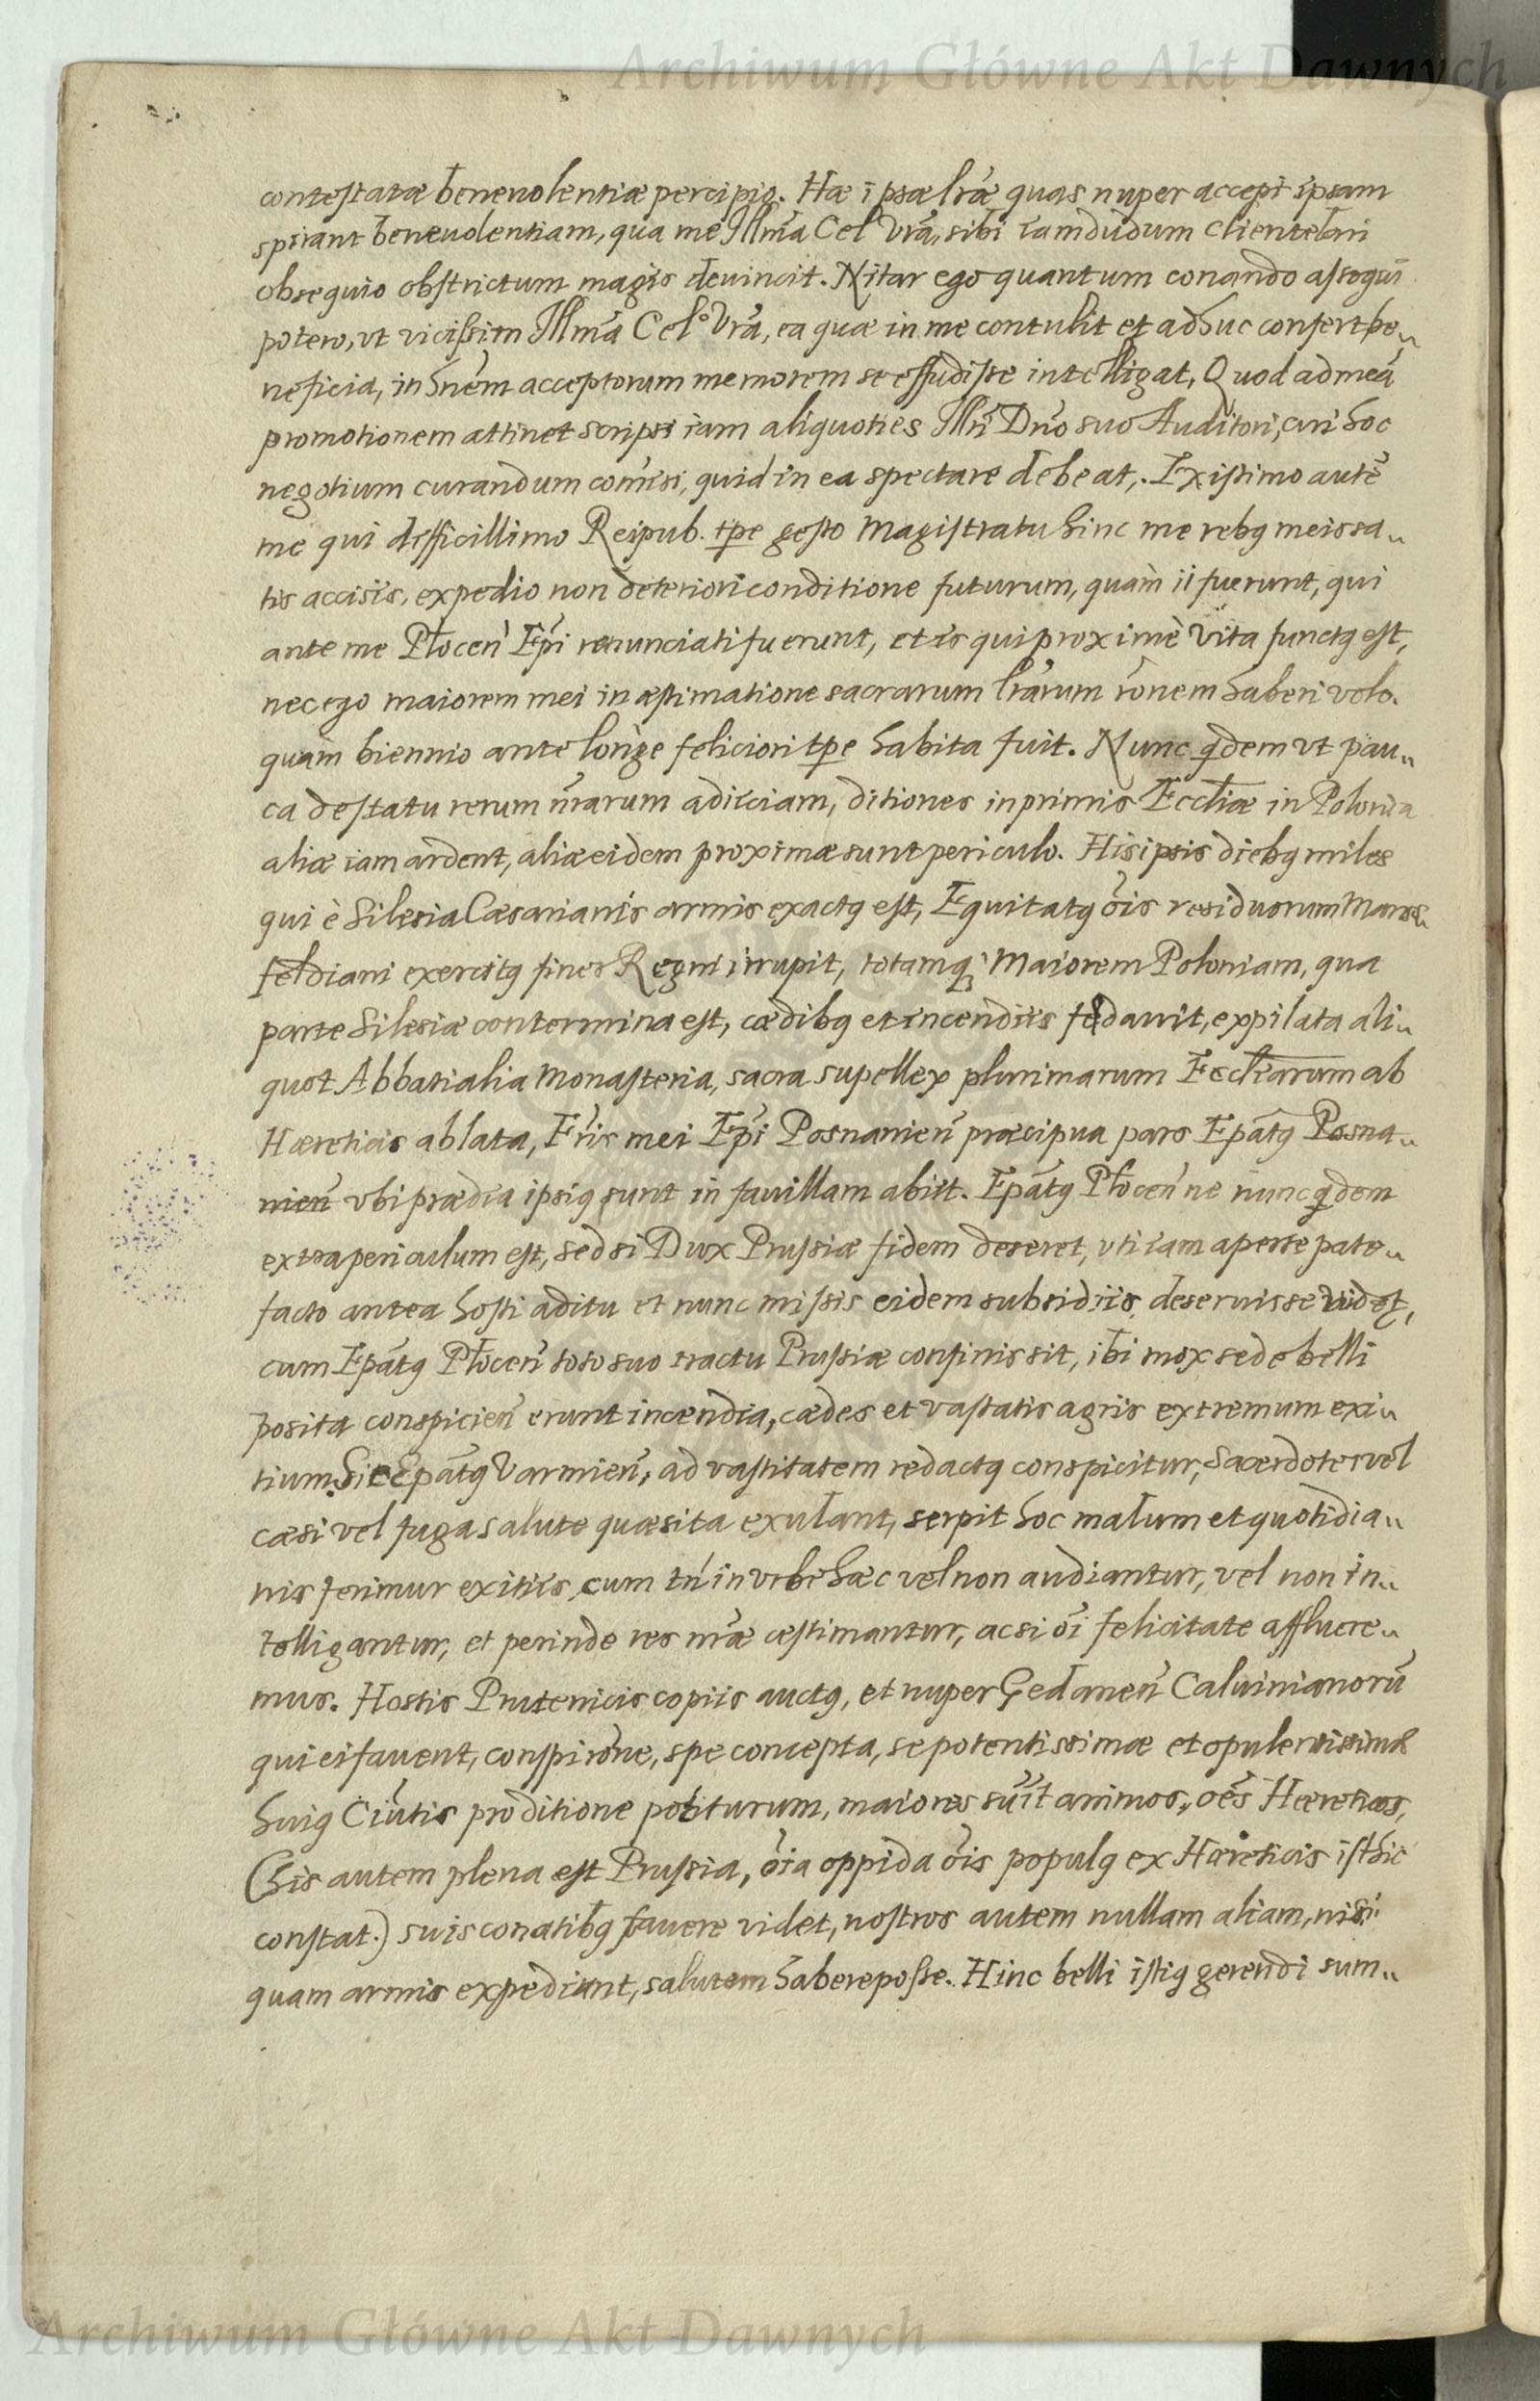 Archiwum Główne Akt Dawnych
contestatæ beneuolentiæ percipio. Hæ ipsæ lr̃æ quas nuper accepi ipsam
spirant beneuolentiam, qua me Illm̃a Cel Vrã, sibi iamdudum clientelari
obsequio obstrictum magis deuincit. Nitar ego quantum conando assequi
potero, vt vicissim Illm̃a Cel.º Vrã, ea quæ in me contulit et adhuc confert be„
neficia, in hñem acceptorum memorem se effudisse intelligat, Quod ad meã
promotionem attinet scripsi iam aliquoties Illri Dño suo Auditori, cui hoc
negotium curandum com̃isi, quid in ea spectare debeat,. Existimo autẽ
me qui difficillimo Reipub. tpe gesto Magistratu hinc me rebq meis sa„
tis accisis, expedio non deteriori conditione futurum, quàm ii fuerunt, qui
ante me Płocen̄ Ep̃i renunciati fuerunt, et is qui proximè vita functq est,
nec ego maiorem mei in æstimatione sacrarum lr̃arum rõnem haberi volo.
quàm biennio ante longe feliciori tpe habita fuit. Nunc qdem vt pau„
ca de statu rerum nr̃arum adijciam, ditiones inprimis Eccliæ in Polonia
aliæ iam ardent, aliæ eidem proximæ sunt periculo. His ipsis diebq miles
qui è Silesia Cæsarianis armis exactq est, Equitatq õis residuorum Mans„
feldiani exercitq fines Regni irrupit, totamq; Maiorem Poloniam, qua
parte Silesiæ contermina est, cædibq et incendiis fędauit, expilata ali„
quot Abbatialia Monasteria, sacra supellex plurimarum Eccliarum ab
Hæreticis ablata, Fr̃is mei Ep̃i Posnanien̄ præcipua pars Epãtq Posna„
nien̄ vbi prædia ipsiq sunt in fauillam abiit. Epãtq Płocen̄ ne nunc qdem
extra periculum est, sed si Dux Prussiæ fidem deseret, vti iam aperte pate„
facto antea hosti aditu et nunc missis eidem subsidiis deseruisse videt,
cum Epãtq Płocen̄ toto suo tractu Prussiæ confinis sit, ibi mox sede belli
posita conspicien̄ erunt incendia, cædes et vastatis agris extremum exi„
tium. Sic Epãtq Varmien̄, ad vastitatem redactq conspicitur, Sacerdotes vel
cæsi vel fuga salute quæsita exulant, serpit hoc malum et quotidia„
nis ferimur exitiis, cum tñ in vrbe hac vel non audiantur, vel non in„
telligantur, et perinde res nr̃æ æstimantur, ac si õi felicitate afflucre„
mus. Hostis Prutenicis copiis auctq, et nuper Gedanen̄ Caluinianorũ
qui ei fauent, conspirõne, spe concepta, se potentissimæ et opulentissimæ
huiq Ciũtis proditione potiturum, maiores suĩt animos, oẽs Hæreticos,
(his autem plena est Prussia, õia oppida õis populq ex Hæreticis isthic
constat.) suis conatibq fauere videt, nostros autem nullam aliam, nisi
quam armis expediunt, salutem habere posse. Hinc belli istiq gerendi sum„
Archiwum Główne Akt Dawnych